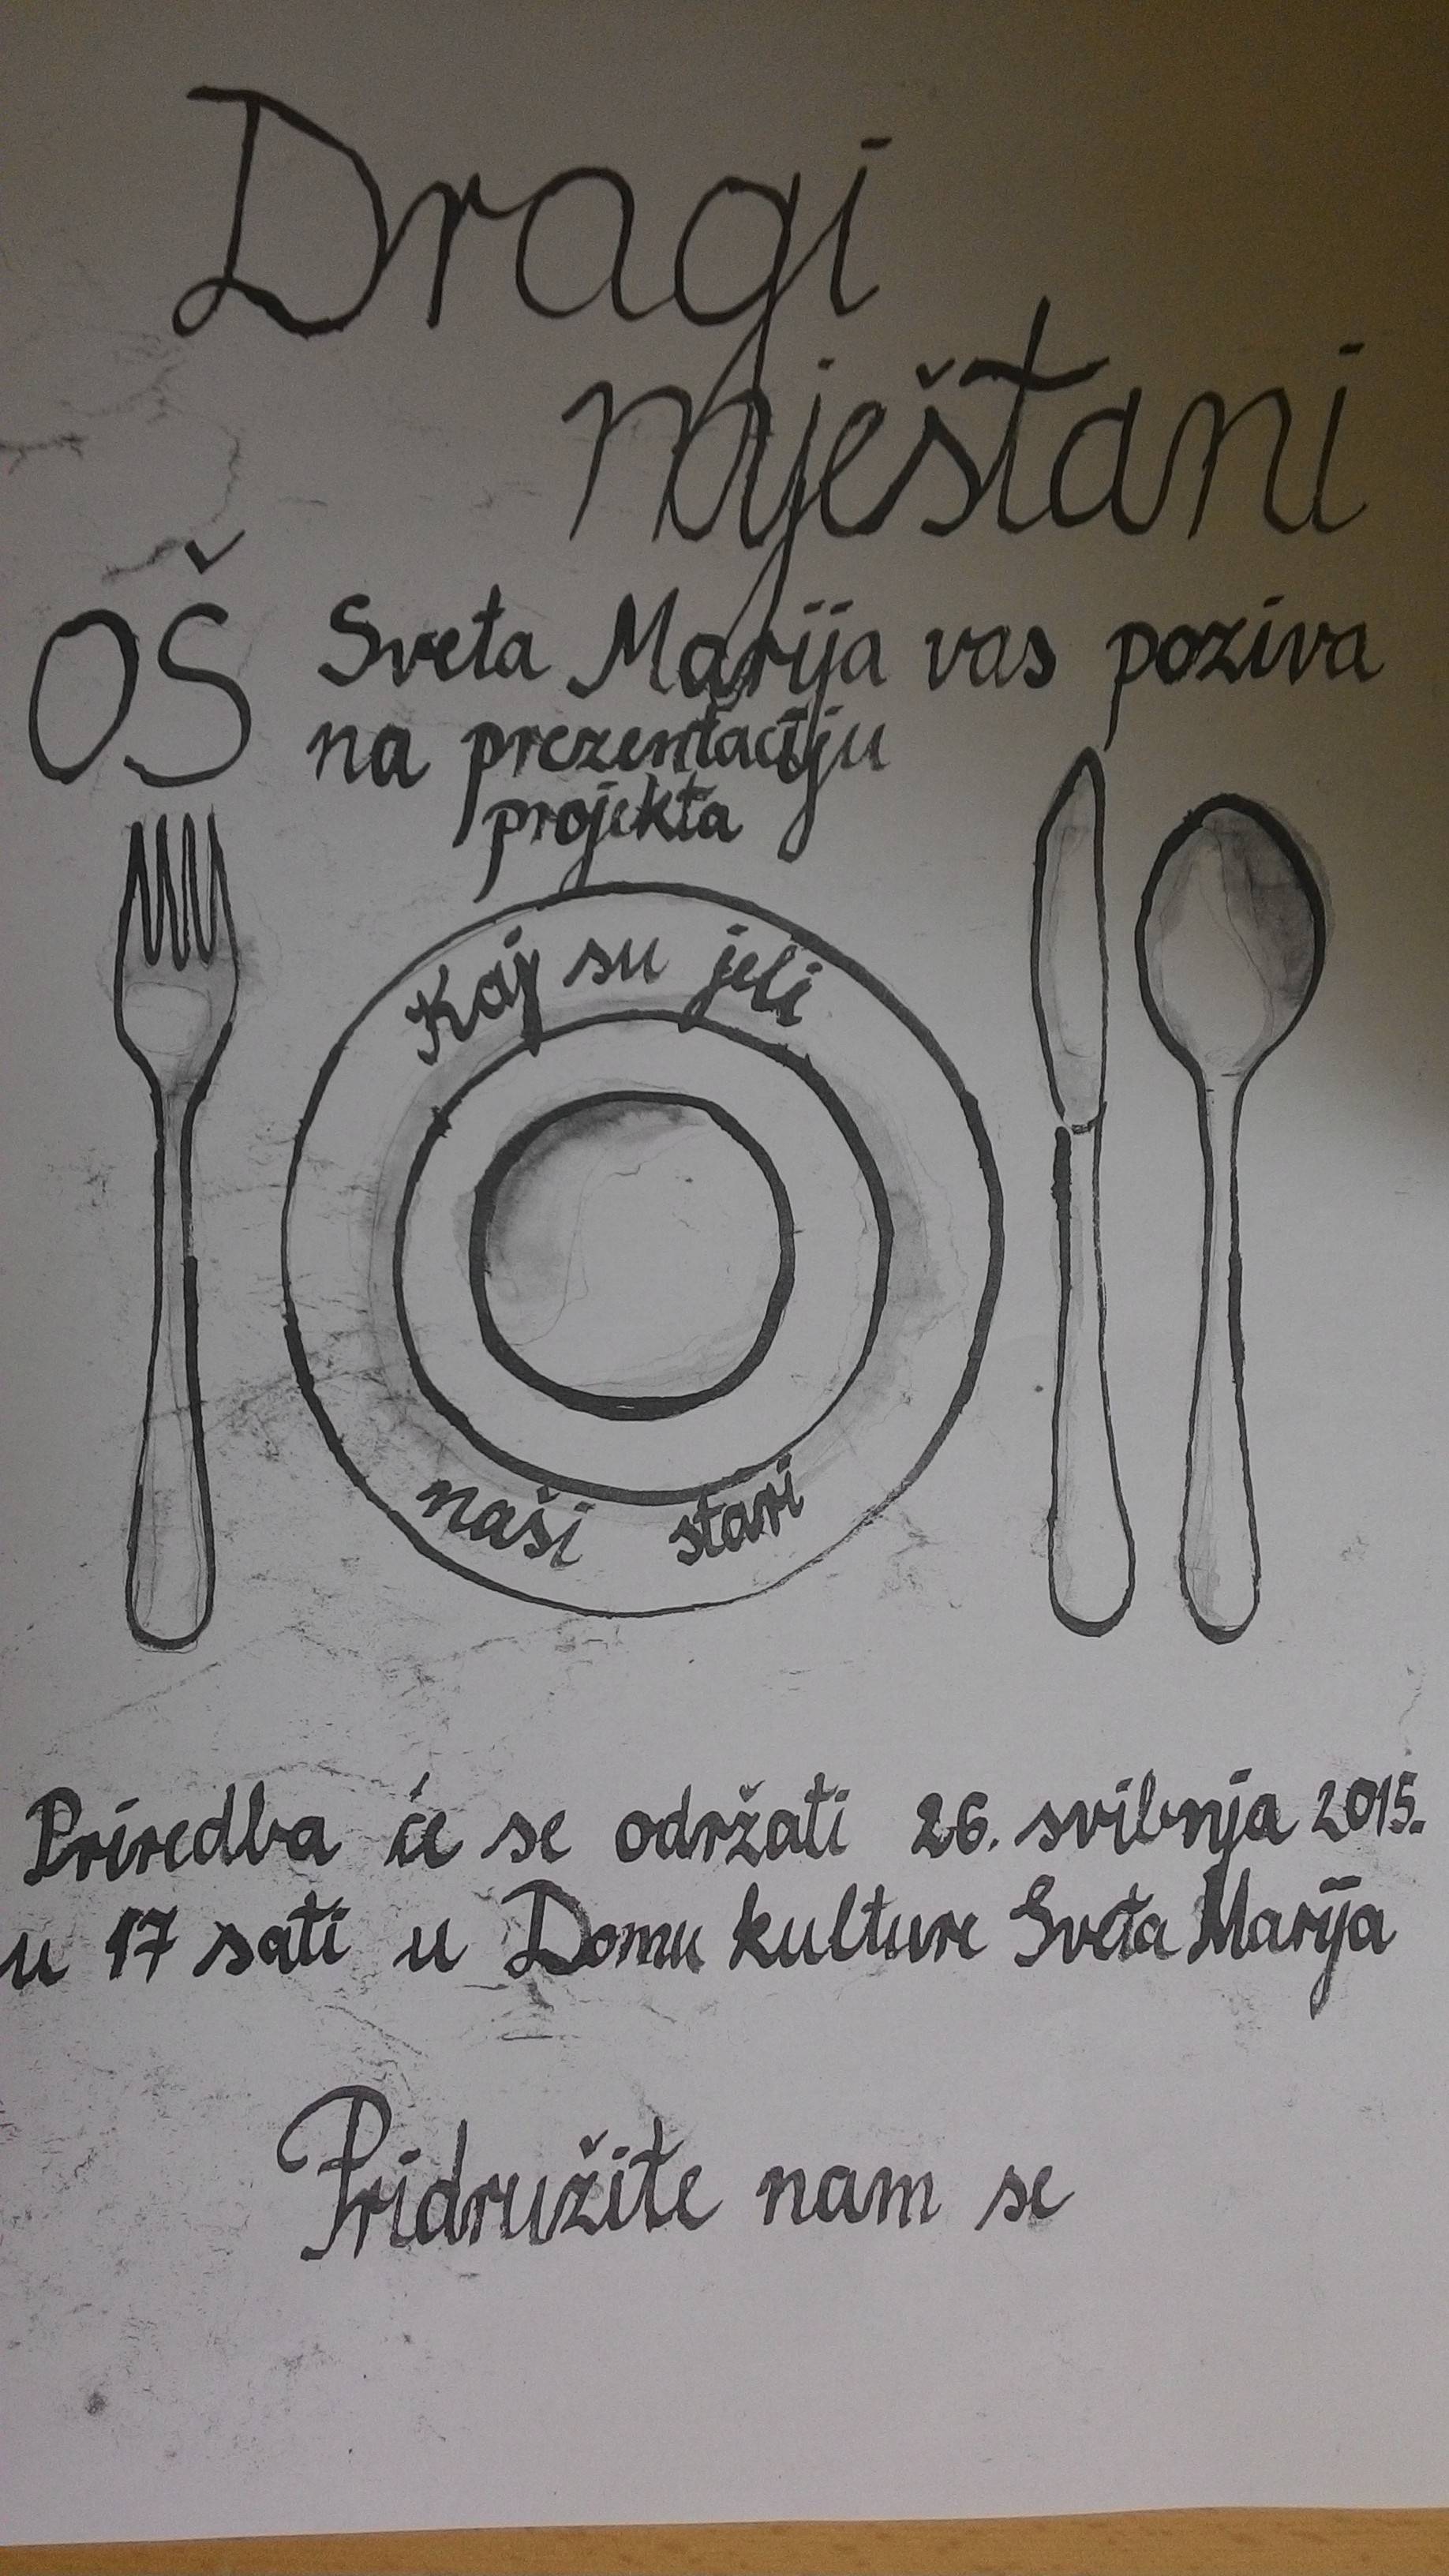 Dragi
mještani
OŠ Sveta Marija vas poziva
na prezentaciju
projekta
Kaj su jeli
naši stari
Priredba će se održati 26. svibnja 2015.
u 17 sati u Domu kulture Sveta Marija
Pridružite nam se